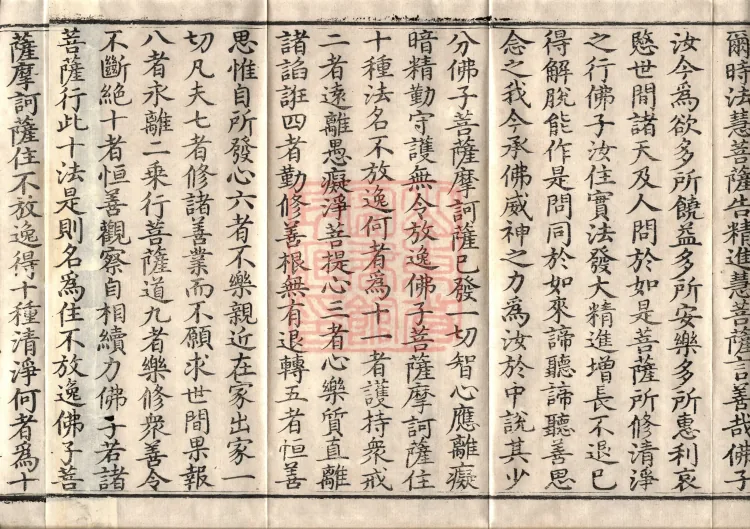 爾時法慧菩薩告精進慧菩薩言善哉佛子
汝今為欲多所饒益多所安樂多所惠利哀
愍世間諸天及人問於如是菩薩所修清淨
之行佛子汝住實法發大精進增長不退已
得解脫能作是問同於如來諦聽諦聽善思
念之我今承佛威神之力為汝於中說其少
分佛子菩薩摩訶薩已發一切智心應離癡
暗精勤守護無令放逸佛子菩薩摩訶薩住
十種法名不放逸何者為十一者護持衆戒
二者遠離愚癡淨菩提心三者心樂質直離
諸諂誑四者勤修善根無有退轉五者恒善
思惟自所發心六者不樂親近在家出家一
切凡夫七者修諸善業而不願求世間果報
八者永離二乘行菩薩道九者樂修衆善令
不斷絕十者恒善觀察自相續力佛子若諸
菩薩行此十法是則名為住不放逸佛子菩
薩摩訶薩住不放逸得十種清淨何者為十